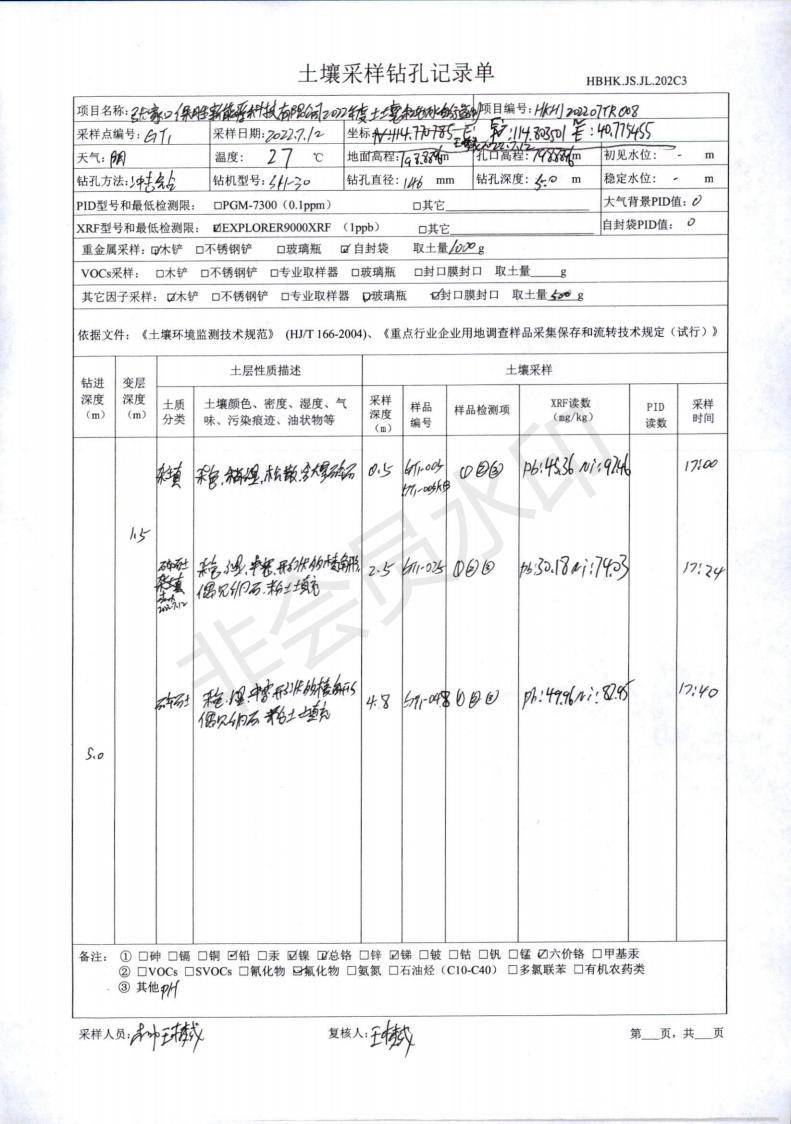 土壤采样钻孔记录单
HBHK.JS.JL.202C3
项目名称: 张家口保胜新能源科技有限公司2022年度土壤和地下水自行监测 项目编号: HKHJ202207TR008
采样点编号: GT1 采样日期: 2022.7.12 坐标 N:114.770785 E: :114.803501 E:40.775455
天气: 阴 温度: 27 ℃ 地面高程: m 孔口高程: m 初见水位: - m
钻孔方法: 冲击钻 钻机型号: SH-30 钻孔直径: 146 mm 钻孔深度: 5.0 m 稳定水位: - m
PID型号和最低检测限: □PGM-7300（0.1ppm） □其它 大气背景PID值: 0
XRF型号和最低检测限: ☑EXPLORER9000XRF （1ppb） □其它 自封袋PID值: 0
重金属采样: ☑木铲 □不锈钢铲 □玻璃瓶 ☑自封袋 取土量1000 g
VOCs采样: □木铲 □不锈钢铲 □专业取样器 □玻璃瓶 □封口膜封口 取土量 g
其它因子采样: ☑木铲 □不锈钢铲 □专业取样器 ☑玻璃瓶 ☑封口膜封口 取土量500 g
依据文件: 《土壤环境监测技术规范》 (HJ/T 166-2004)、《重点行业企业用地调查样品采集保存和流转技术规定（试行）》
钻进深度（m） 变层深度（m） 土层性质描述 土壤采样
土质分类 土壤颜色、密度、湿度、气味、污染痕迹、油状物等 采样深度（m） 样品编号 样品检测项 XRF读数（mg/kg） PID读数 采样时间
杂填 杂色,稍湿,松散,含大量碎石 0.5 GT1-005 ①②③ Pb:45.36 Ni:92.46 17:00
1.5
碎石土 杂色,湿,中密,形状为棱角形, 2.5 GT1-025 ①②③ Pb:30.18 Ni:74.03 17:24
杂填 偶见卵石,粘土填充
2022.7.12
碎石土 杂色,湿,中密,形状为棱角形 4.8 GT1-048 ①②③ Pb:49.96 Ni:82.95 17:40
偶见卵石 粘土填充
5.0
备注: ① □砷 □镉 □铜 ☑铅 □汞 ☑镍 ☑总铬 □锌 ☑锑 □铍 □钴 □钒 □锰 ☑六价铬 □甲基汞
② □VOCs □SVOCs □氰化物 ☑氟化物 □氨氮 □石油烃（C10-C40） □多氯联苯 □有机农药类
③ 其他pH
采样人员: 复核人:
第 页，共 页
非会员水印